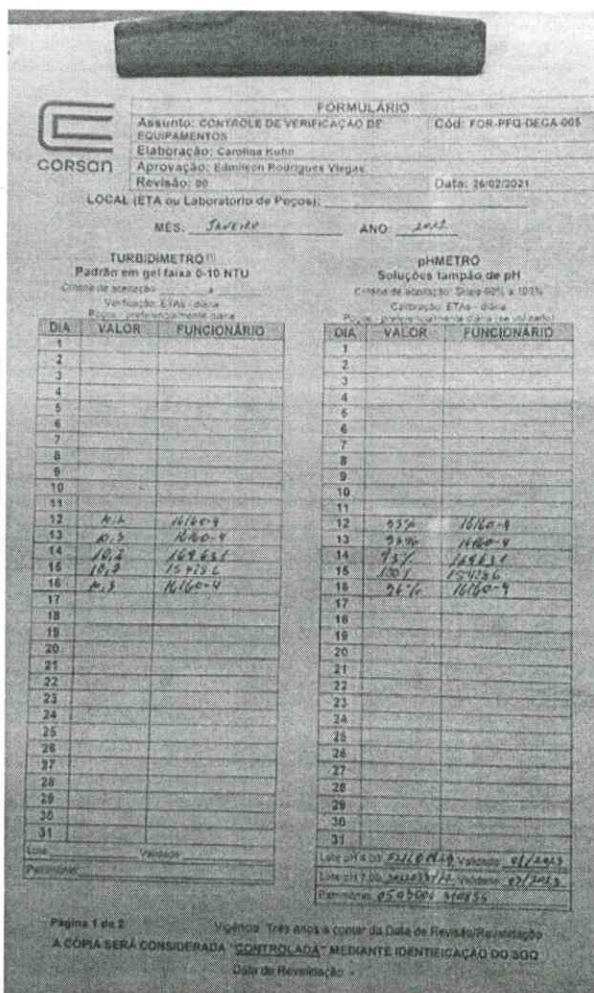 FORMULÁRIO
Assunto: CONTROLE DE VERIFICAÇÃO DE EQUIPAMENTOS
Cód: FOR-PFQ-DEGA-005
Elaboração: Carolina Kuhn
Aprovação: Edmilson Rodrigues Viegas
Revisão: 00
Data: 26/02/2021
CORSAN
LOCAL (ETA ou Laboratório de Poços):
MÊS: JANEIRO ANO:
TURBIDÍMETRO (1)
Padrão em gel faixa 0-10 NTU
Critério de aceitação: a
Verificação: ETAs - diária
Poços - preferencialmente diária
DIA VALOR FUNCIONÁRIO
1
2
3
4
5
6
7
8
9
10
11
12 16160-4
13 10,3 16160-4
14 10,2 169631
15 10,2
16 10,3 16160-4
17
18
19
20
21
22
23
24
25
26
27
28
29
30
31
Lote: Validade:
Patrimônio:
pHMETRO
Soluções tampão de pH
Critério de aceitação: Slope 90% a 103%
Calibração: ETAs - diária
Poços - preferencialmente diária (se utilizado)
DIA VALOR FUNCIONÁRIO
1
2
3
4
5
6
7
8
9
10
11
12 93% 16160-4
13 16160-4
14 93% 169631
15 100%
16 96% 16160-4
17
18
19
20
21
22
23
24
25
26
27
28
29
30
31
Lote pH 4,00: Validade:
Lote pH 7,00: Validade:
Patrimônio:
Página 1 de 2
Vigência: Três anos a contar da Data de Revisão/Revalidação
A CÓPIA SERÁ CONSIDERADA "CONTROLADA" MEDIANTE IDENTIFICAÇÃO DO SGQ
Data de Revalidação: -